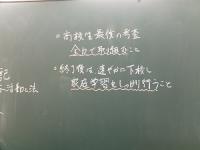 ○高校生最後の考査
全力で取り組むこと
○終了後は、速やかに下校し
家庭学習をしっかり行うこと
記
法